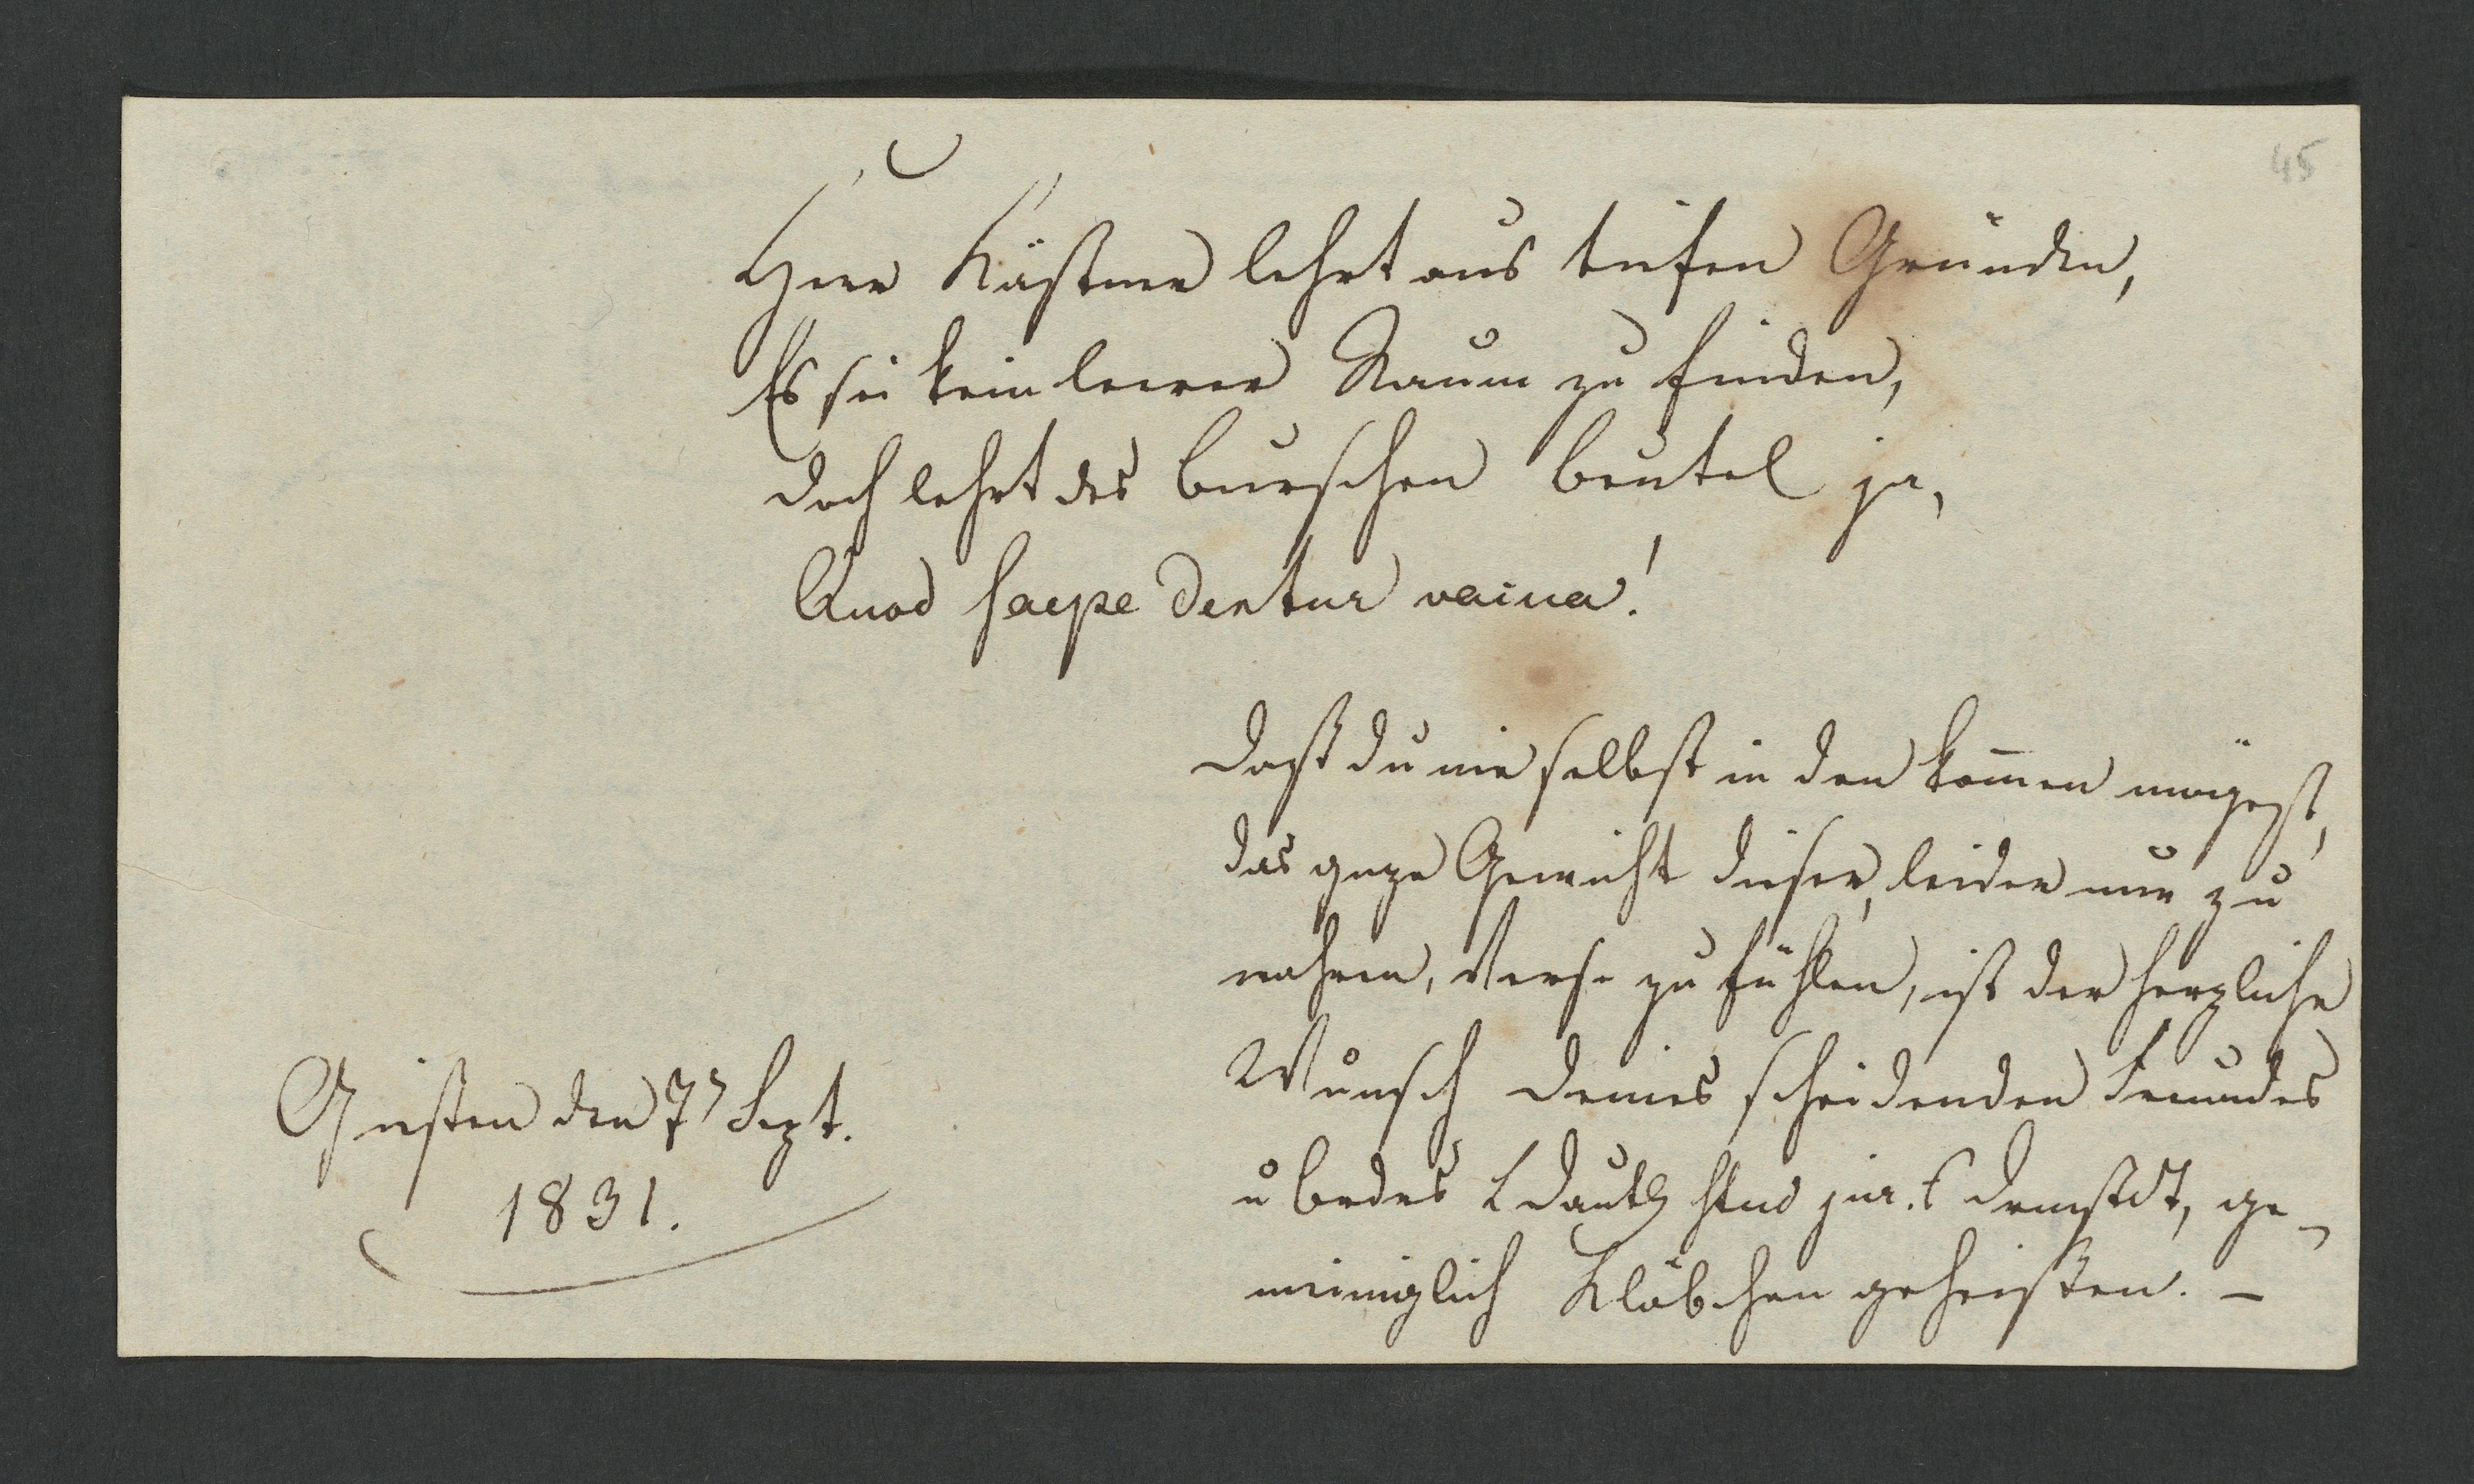 45
Herr Kästner lehrt aus tiefen Gründen,
Es sei kein leerer Raum zu finden,
doch lehrt des Burschen Beutel ja,
Quod saepe dentur vacua!
Daß du nie selbst in den kom̄en mögest,
das ganze Gewicht dieser, leider nur zu
wahren, Verse zu fühlen, ist der herzliche
Wunsch deines scheidenden Freundes
u Bruders L Dauth stud jur. Darmstdt, ge-
meiniglich Kläbchen geheißen. –
Gießen den 7n Sept.
1831.